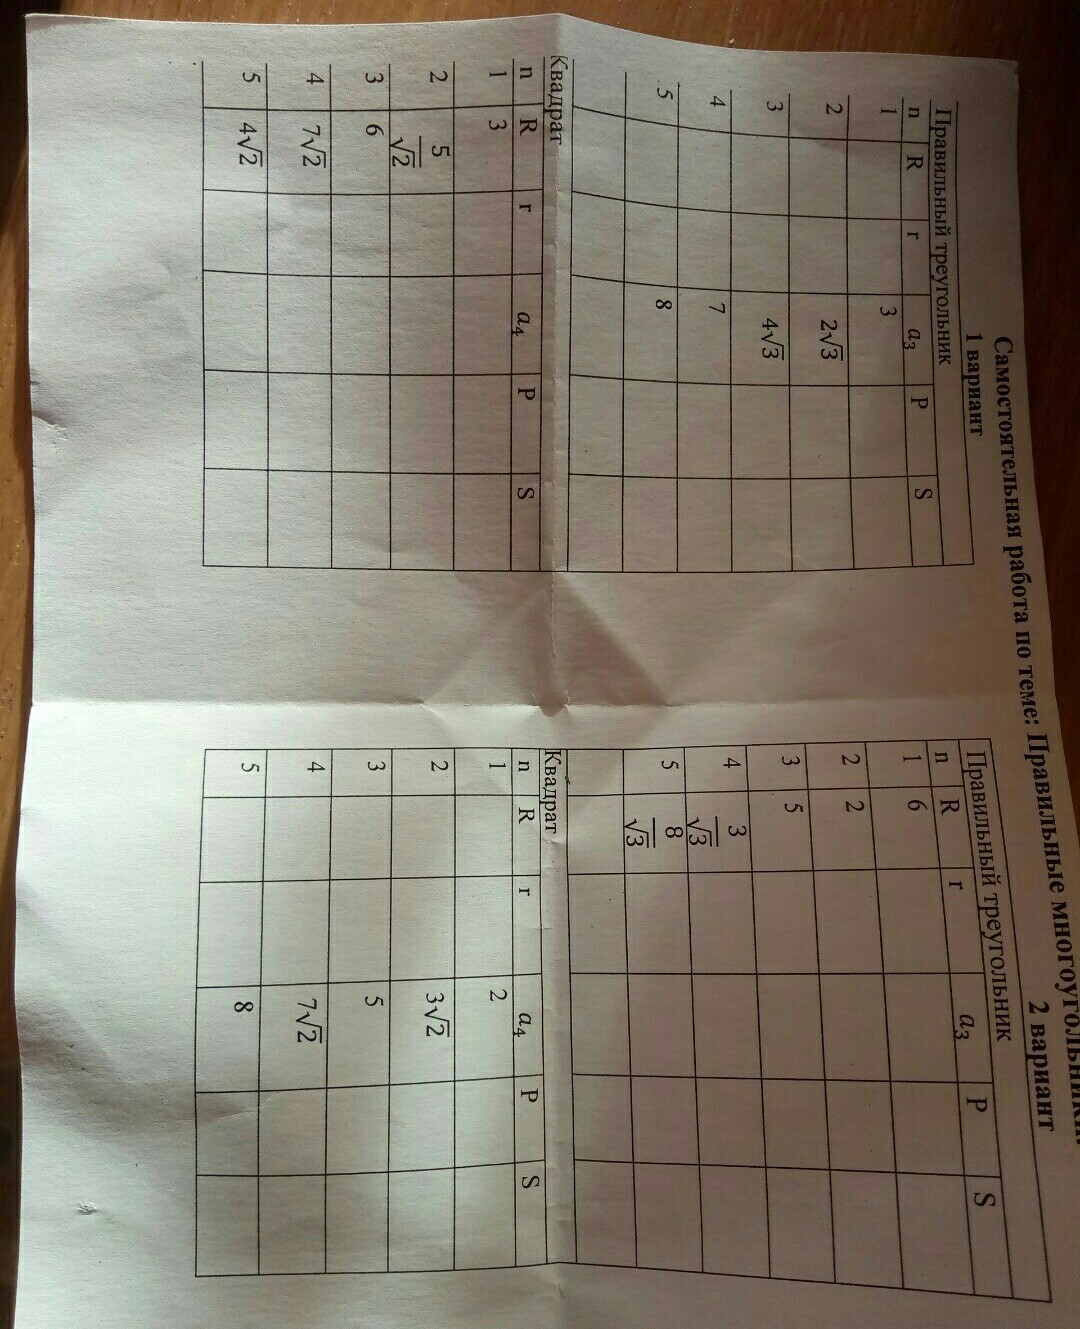 Самостоятельная работа по теме: Правильные многоугольники.
1 вариант
Правильный треугольник
n R r a₃ P S
1 3
2 2√3
3 4√3
4 7
5 8
Квадрат
n R r a₄ P S
1 3
2 5/√2
3 6
4 7√2
5 4√2
2 вариант
Правильный треугольник
n R r a₃ P S
1 6
2 2
3 5
4 3/√3
5 8/√3
Квадрат
n R r a₄ P S
1 2
2 3√2
3 5
4 7√2
5 8